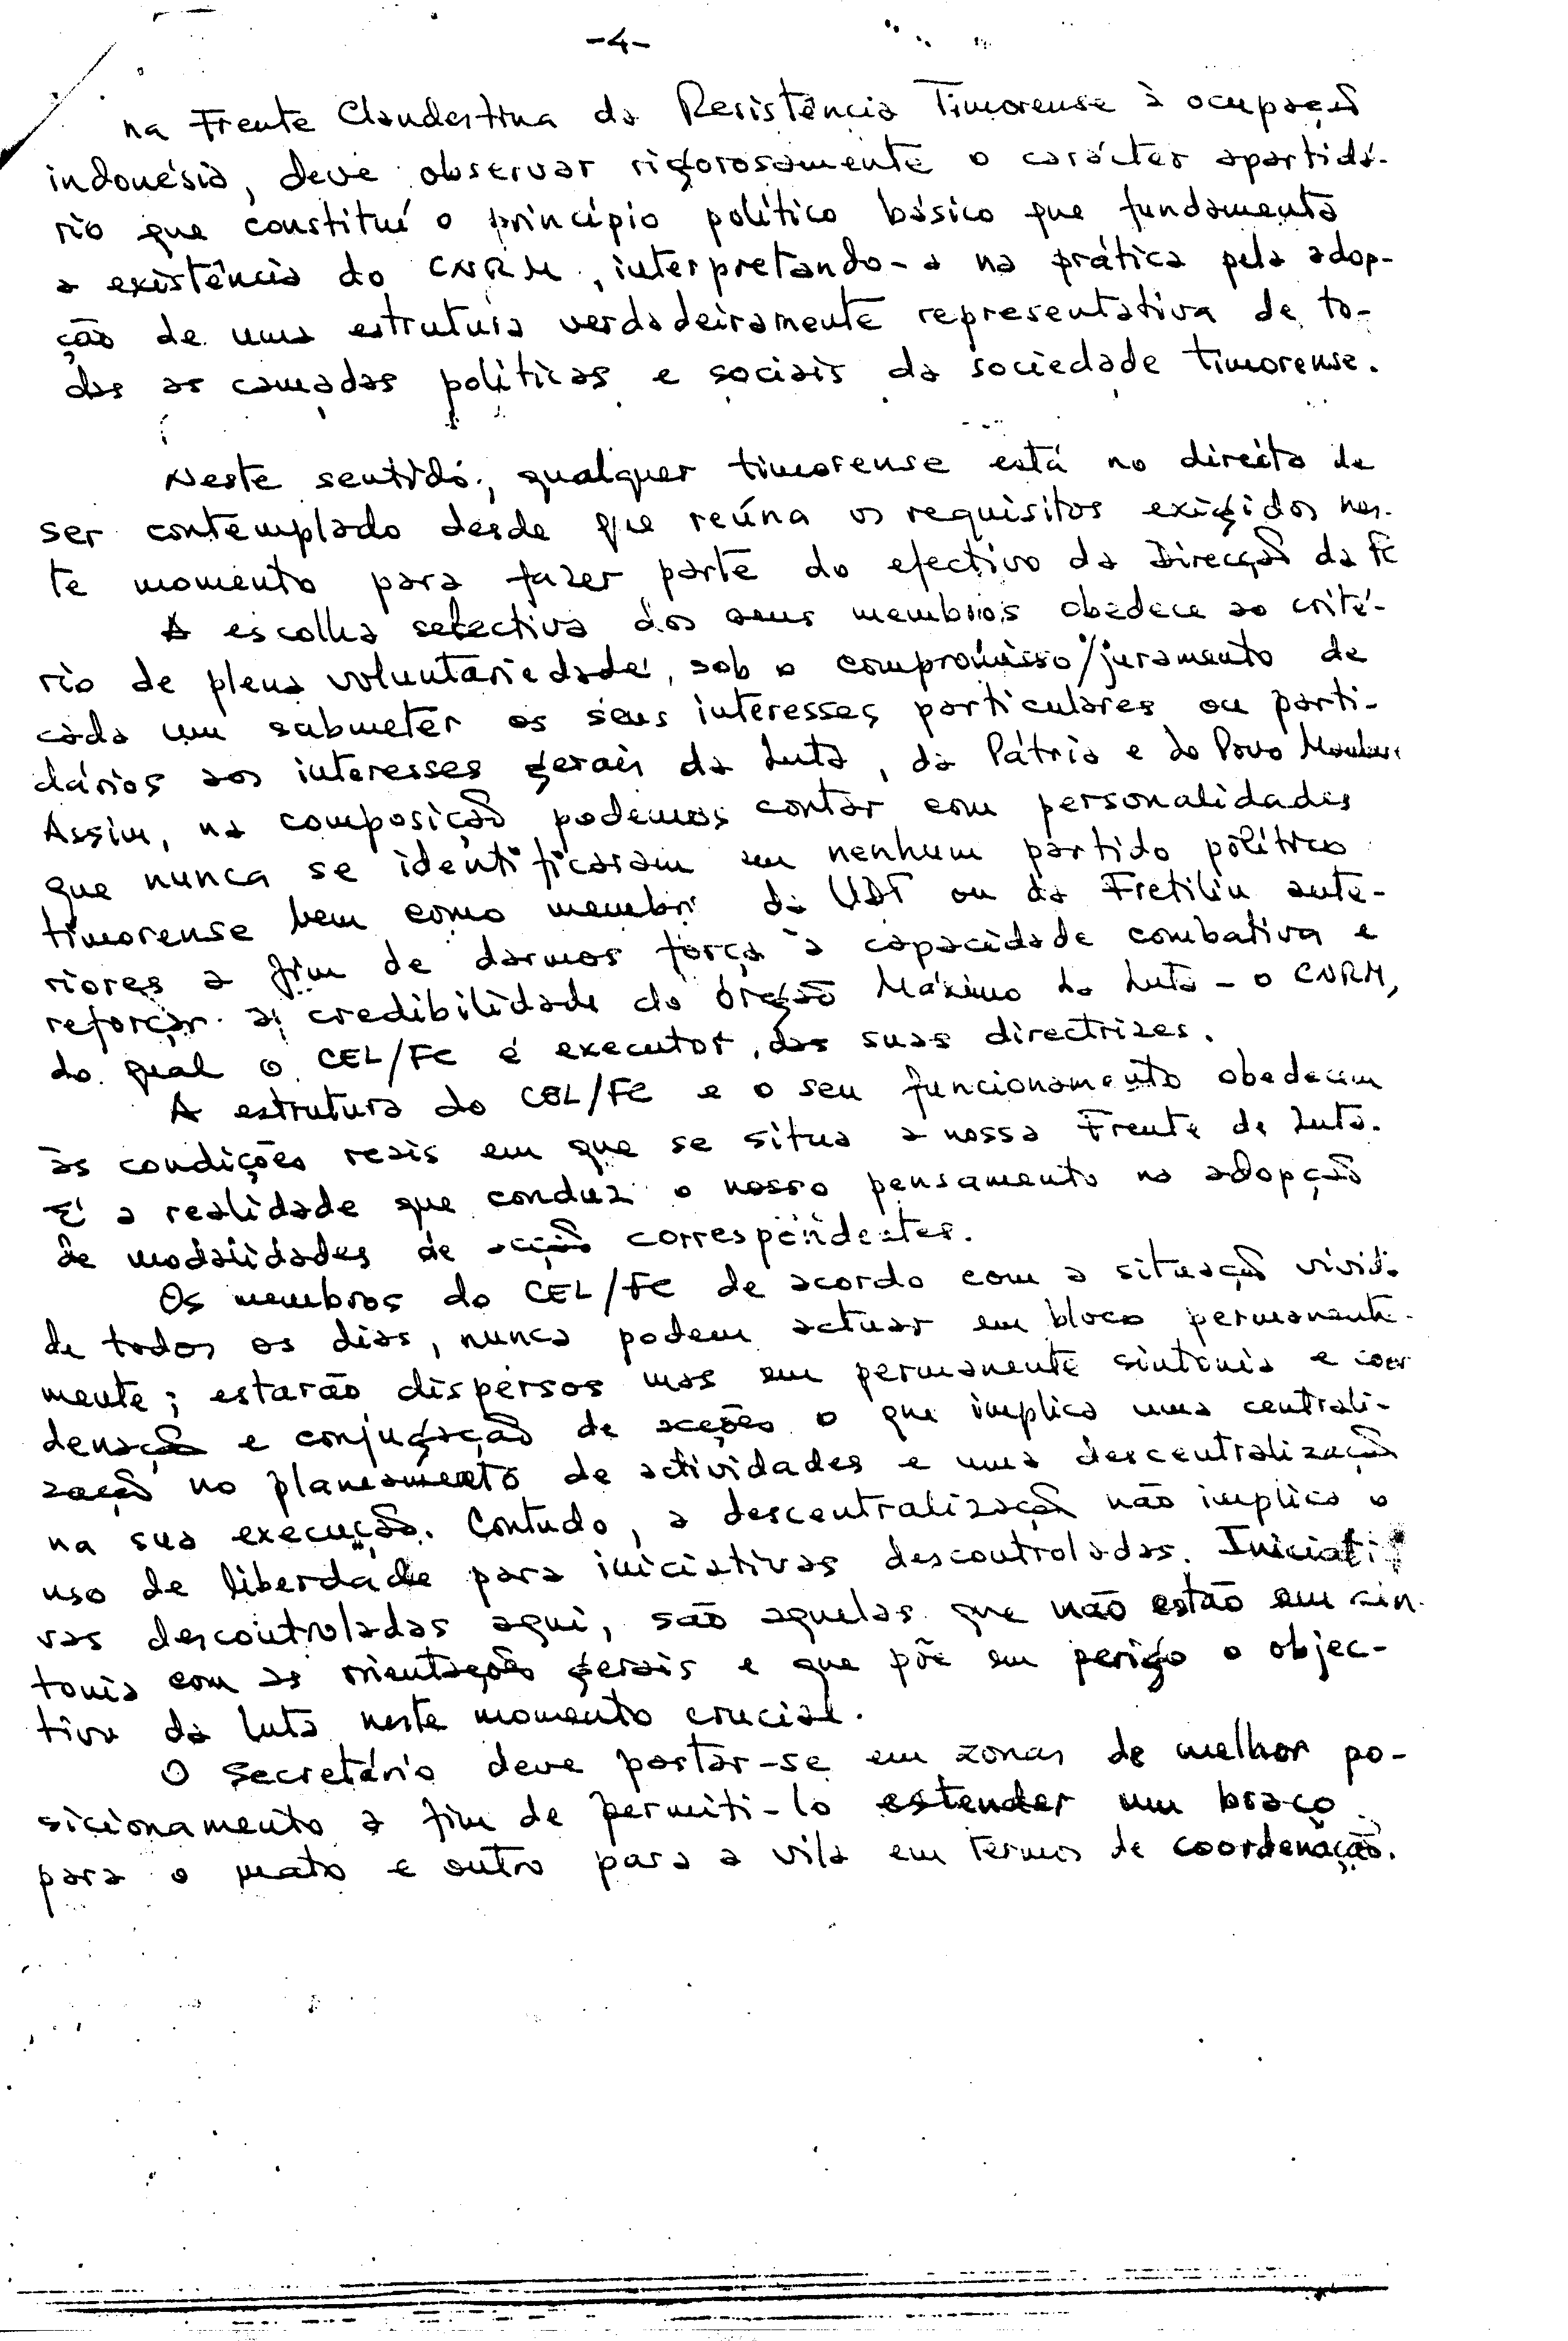 -4-
na Frente Clandestina da Resistência Timorense à ocupação
indonésia, deve observar rigorosamente o carácter apartidá-
rio que constituí o princípio político básico que fundamenta
a existência do CNRM, interpretando-a na prática pela adop-
ção de uma estrutura verdadeiramente representativa de to-
das as camadas políticas e sociais da sociedade timorense.
Neste sentido, qualquer timorense está no direito de
ser contemplado desde que reúna os requisitos exigidos nes-
te momento para fazer parte do efectivo da Direcção da FC
A escolha selectiva dos seus membros obedece ao crité-
rio de plena voluntariedade, sob o compromisso/juramento de
cada um submeter os seus interesses particulares ou parti-
dários aos interesses gerais da Luta, da Pátria e do Povo
Assim, na composição podemos contar com personalidades
que nunca se identificaram em nenhum partido político
timorense bem como membri da UDT ou da Fretilin ante-
riores a fim de darmos força à capacidade combativa e
reforçar a credibilidade do Órgão Máximo da Luta - o CNRM,
do qual o CEL/FC é executor das suas directrizes.
A estrutura do CEL/FC e o seu funcionamento obedecem
às condições reais em que se situa a nossa Frente de Luta.
É a realidade que conduz o nosso pensamento na adopção
de modalidades de acção correspondentes.
Os membros do CEL/FC de acordo com a situação vivida
de todos os dias, nunca podem actuar em bloco permanente-
mente; estarão dispersos mas em permanente sintonia e coor
denação e conjugação de acções o que implica uma centrali-
zação no planeamento de actividades e uma descentralização
na sua execução. Contudo, a descentralização não implica o
uso de liberdade para iniciativas descontroladas. Iniciati
vas descontroladas aqui, são aquelas que não estão em sin-
tonia com as orientações gerais e que põe em perigo o objec-
tivo da luta neste momento crucial.
O Secretário deve postar-se em zonas de melhor po-
sicionamento a fim de permiti-lo estender um braço
para o mato e outro para a vila em termos de coordenação.